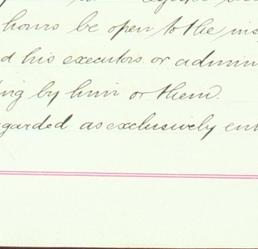 hours be open to the ins
d his executors or admin
ing by him or them.
egarded as exclusively en